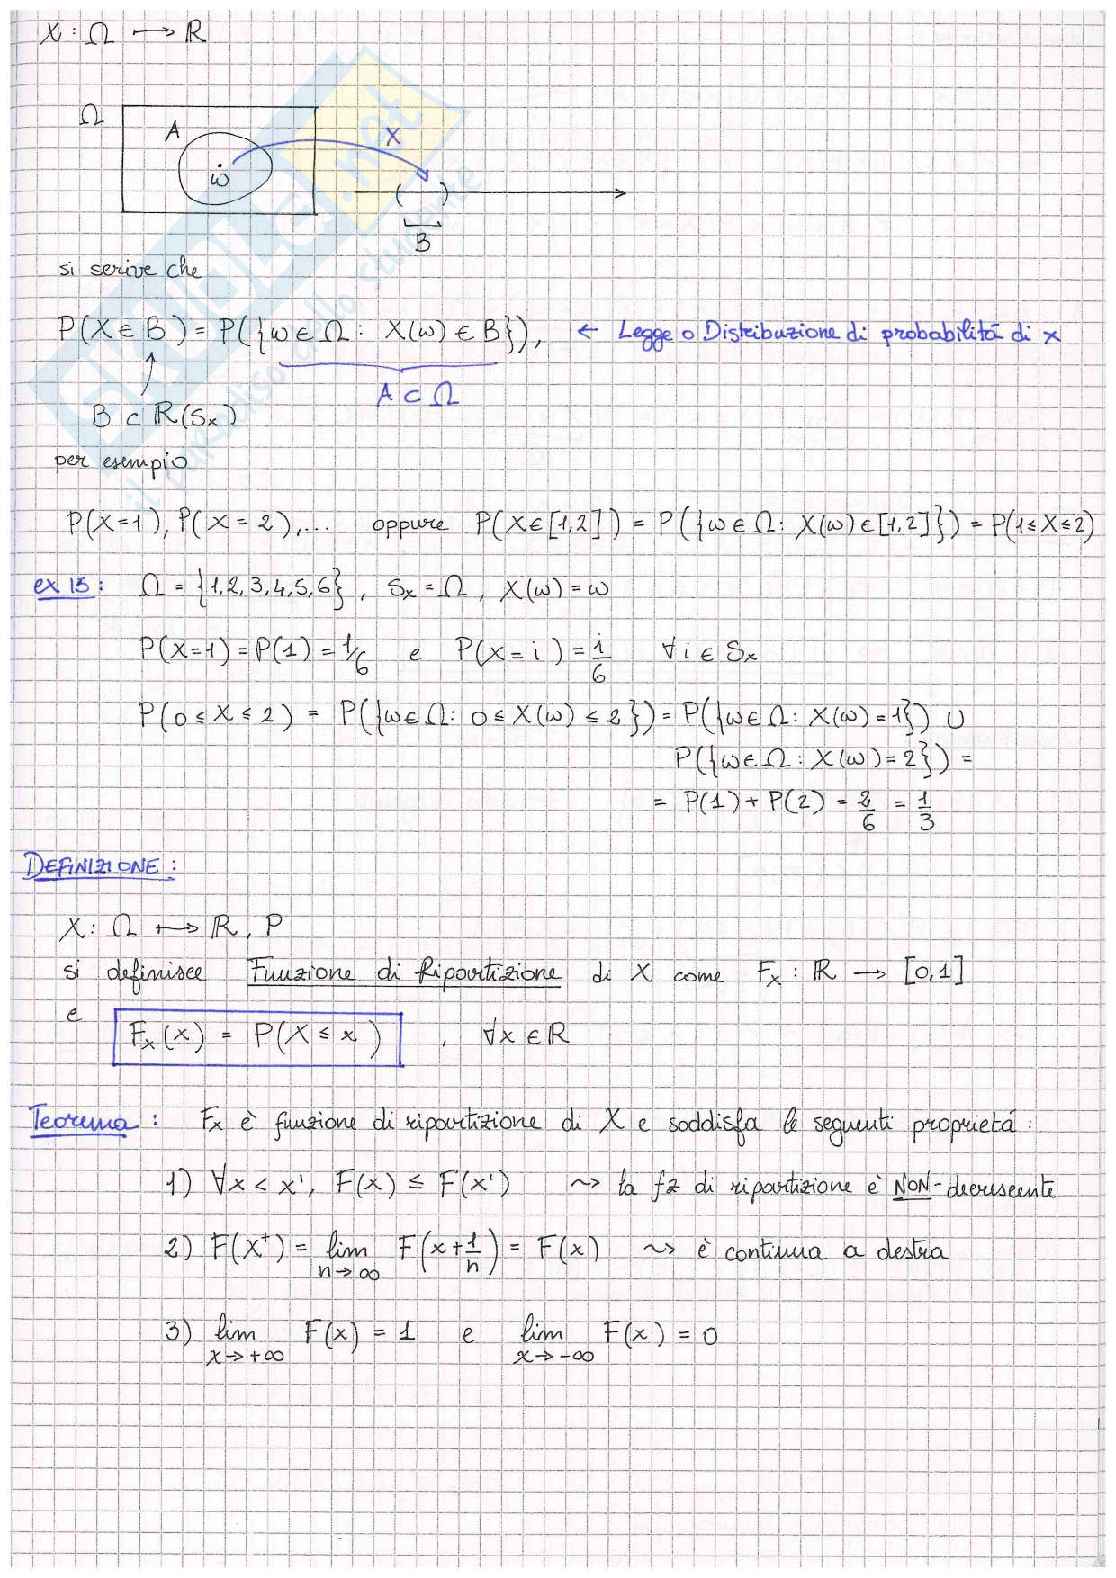 X : Ω ⟼ ℝ
Ω
A
X
ω
( )
B
si scrive che
P(X ∈ B) = P({ω ∈ Ω : X(ω) ∈ B}), ← Legge o Distribuzione di probabilitá di x
A ⊂ Ω
B ⊂ ℝ(Sx)
per esempio
P(X=1), P(X=2),... oppure P(X∈[1,2]) = P({ω ∈ Ω: X(ω) ∈ [1,2]}) = P(1≤X≤2)
ex 13: Ω = {1,2,3,4,5,6}, Sx = Ω, X(ω) = ω
P(X=1) = P(1) = 1/6 e P(X=i) = i/6 ∀ i ∈ Sx
P(0 ≤ X ≤ 2) = P({ω∈Ω: 0 ≤ X(ω) ≤ 2}) = P({ω∈Ω: X(ω) = 1}) ∪
P({ω∈Ω : X(ω) = 2}) =
= P(1) + P(2) = 2/6 = 1/3
DEFINIZIONE :
X : Ω ⟼ ℝ, P
si definisce Funzione di Ripartizione di X come Fx : ℝ → [0,1]
e Fx(x) = P(X ≤ x) , ∀x ∈ ℝ
Teorema : Fx è funzione di ripartizione di X e soddisfa le seguenti proprietá :
1) ∀x < x', F(x) ≤ F(x') ⇝ la fz di ripartizione è NON-decrescente
2) F(x⁺) = lim n→∞ F(x+1/n) = F(x) ⇝ è continua a destra
3) lim x→+∞ F(x) = 1 e lim x→-∞ F(x) = 0